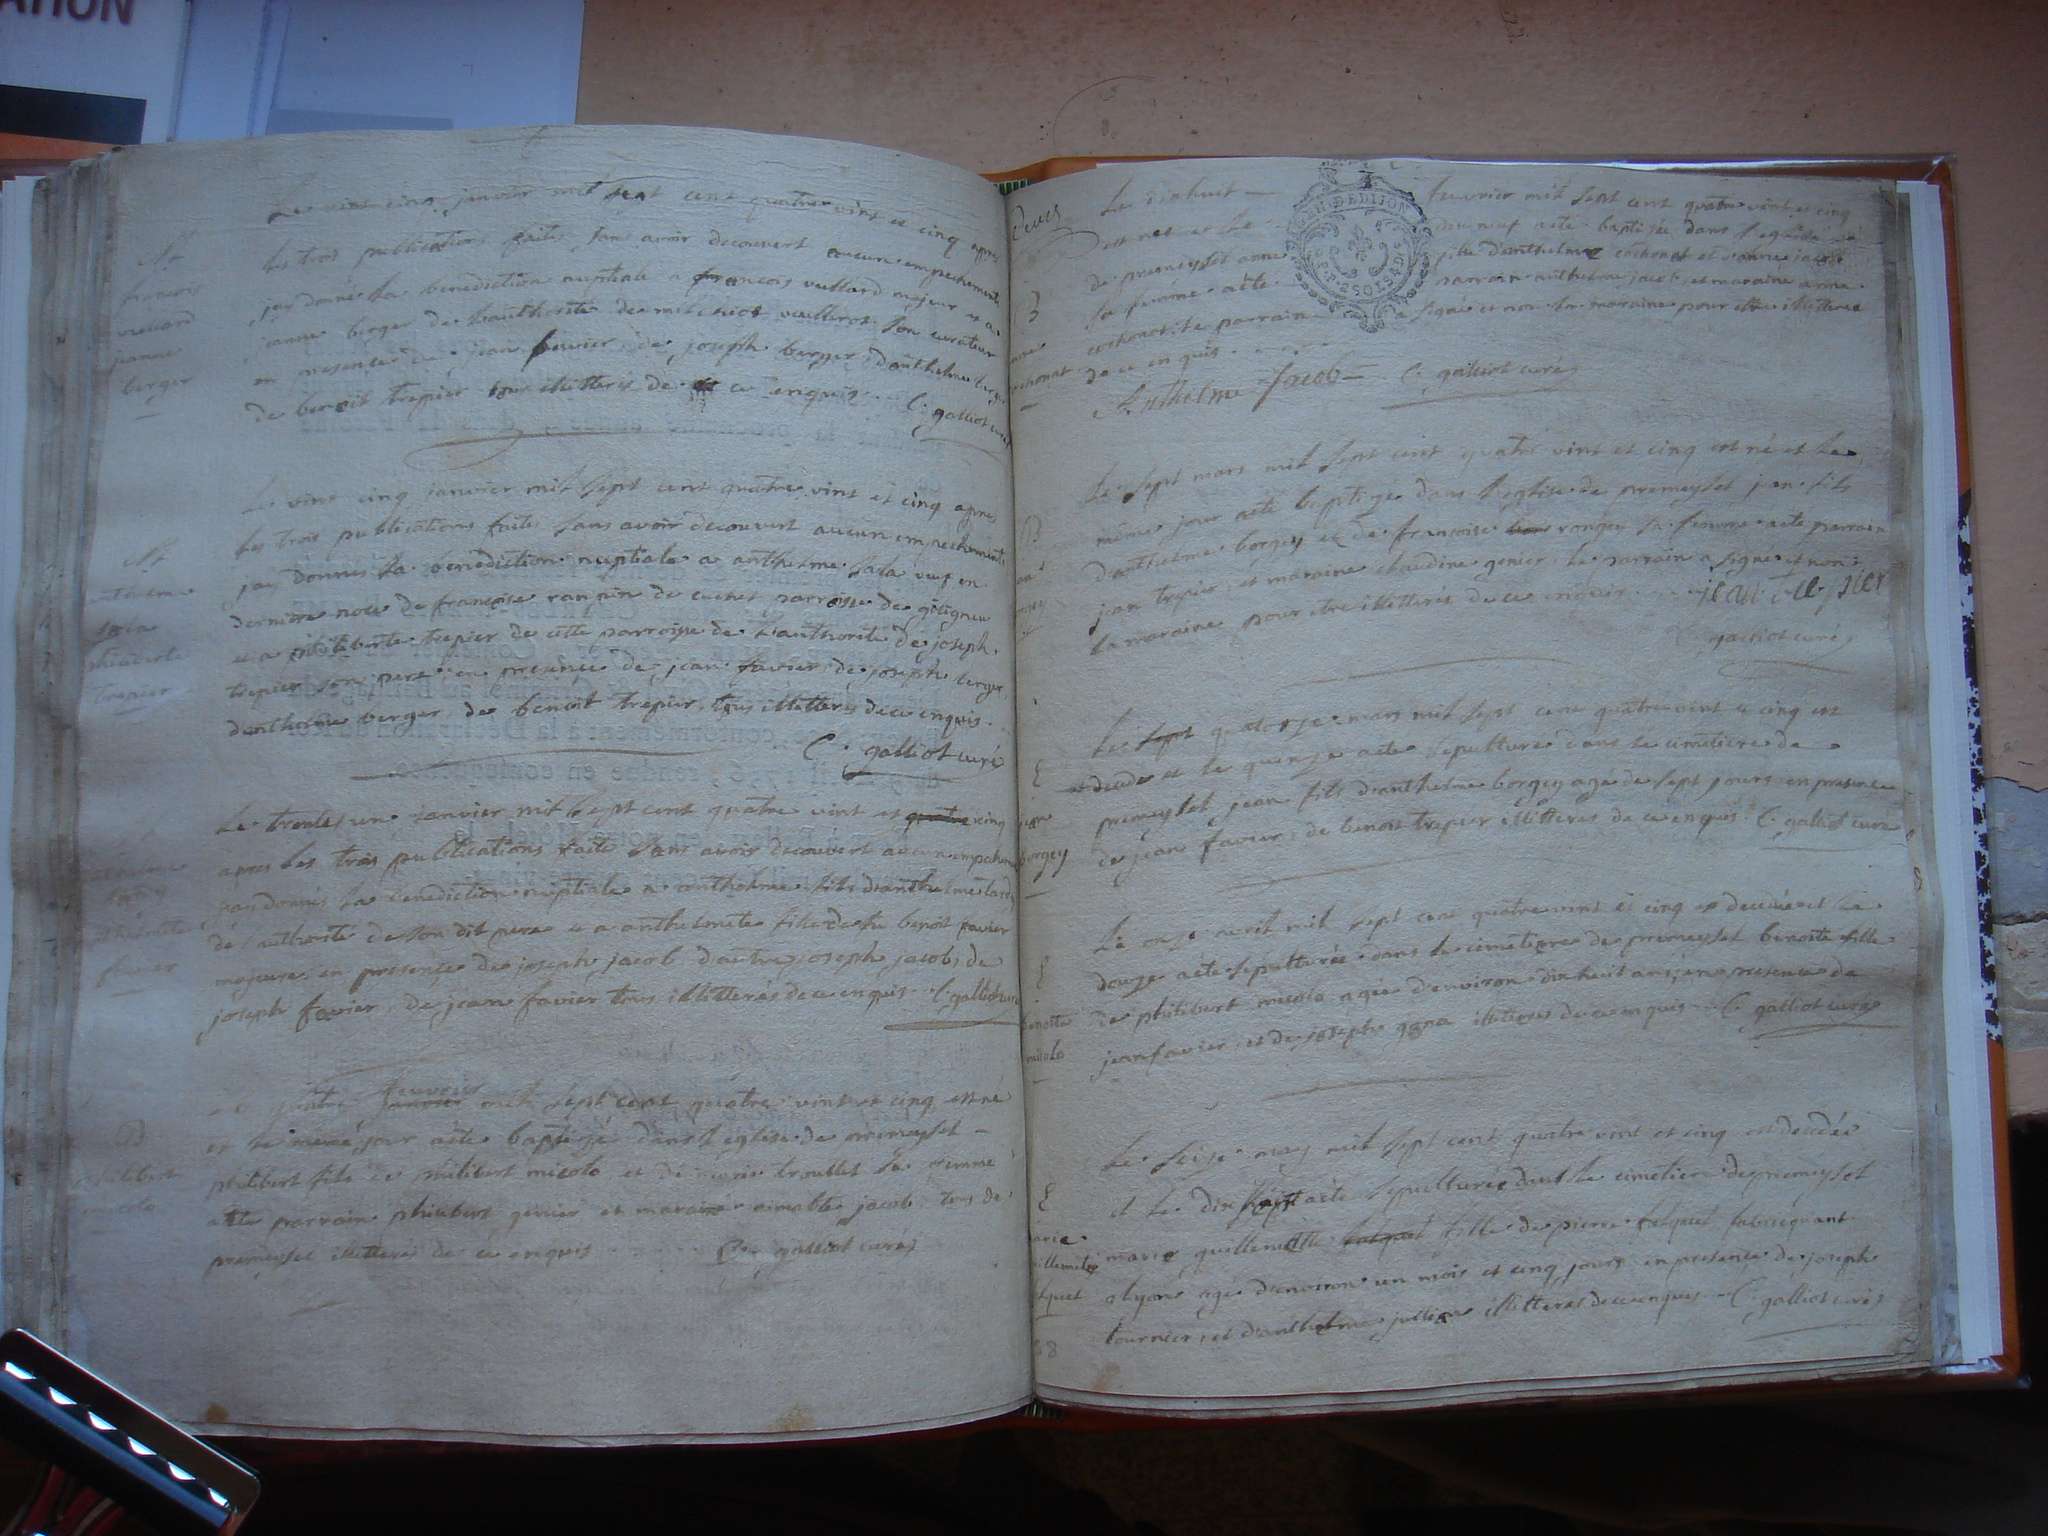 ATION
Le vint cinq janvier mil sept cent quatre vint et cinq apres
les trois publications faites sans avoir decouvert aucun empechement
jay donné la benediction nuptiale a francois vullard majeur et a
jeanne berger de l'authorité de son curateur
en presence de jean favier, de joseph berger, d'anthelme berger
de benoit trepier tous illitterés de ce enquis. C. galliot curé
M
francois
vullard
jeanne
berger
Le vint cinq janvier mil sept cent quatre vint et cinq apres
les trois publications faites sans avoir decouvert aucun empechement
jay donnés la benediction nuptiale a anthelme sala veuf en
derniere noce de francoise de parroisse de
et a philiberte trepier de cette parroisse de l'authorité de joseph
trepier son pere en presence de jean favier, de joseph berger
d'anthelme berger, de benoit trepier, tous illitterés de ce enquis.
C. galliot curé
M
anthelme
sala
philiberte
trepier
Le trente un janvier mil sept cent quatre vint et quatre cinq
apres les trois publications faite sans avoir decouvert aucun empechem
jay donnés la benediction nuptiale a anthelme fils d'anthelme
de l'authorité de son dit pere et a anthelmete fille de fu benoit favier
majeure en presence de joseph jacob d'autre joseph jacob, de
joseph favier, de jean favier tous illitterés de ce enquis C. galliot curé
favier
Le quatre janvier feuvrier mil sept cent quatre vint et cinq est né
et le même jour aété baptisé dans l'eglise de premeyset
philibert fils de philibert micolo et de marie troullet sa femme
aété parrain philibert genier et maraine aimable jacob tous de
premeyset illitterés de ce enquis C. galliot curé
B
philibert
micolo
Le dixhuit feuvrier mil sept cent quatre vint et cinq
est née et le dixneuf aété baptisée dans l'eglise
de premeyset anne fille d'anthelme cochonat et d'anne jacob
sa femme aété parrain anthelme jacob et maraine anne
cochonat le parrain a signé et non la marraine pour etre illitteree
de ce enquis
Anthelme Jacob C. galliot curé
B
anne
cochonat
GEN. DE DIJON
Le sept mars mil sept cent quatre vint et cinq est né et le
même jour aété baptizé dans l'eglise de premeyset jean fils
d'anthelme borgey et de francoise rongey sa femme aété parrain
jean trepier, et maraine claudine genier le parrain a signe et non
la maraine pour etre illitterés de ce enquis jean trepier
C. galliot curé
B
Le sept quatorze mars mil sept cent quatre vint et cinq est
decedé et le quinze aété sepulturé dans le cimetiere de
premeyset jean fils d'anthelme borgey agé de sept jours en presence
de jean favier, de benoit trepier illitterés de ce enquis C. galliot curé
E
jean
borgey
Le onze avril mil sept cent quatre vint et cinq est decedée et le
douze aété sepulturée dans le cimetiere de premeyset benoite fille
de philibert micolo agée d'environ dix huit ans, en presence de
jean favier, et de joseph illitterés de ce enquis C. galliot curé
E
benoite
micolo
Le seize may mil sept cent quatre vint et cinq est decedée
et le dix sept aété sepulturee dans le cimetiere de premeyset
marie guillemette fille de pierre falquet fabriquant
a lyon agé d'environ un mois et cinq jours en presence de joseph
tournier, et d'anthelme jullien illitterés de ce enquis C. galliot curé
E
marie
guillemete
falquet